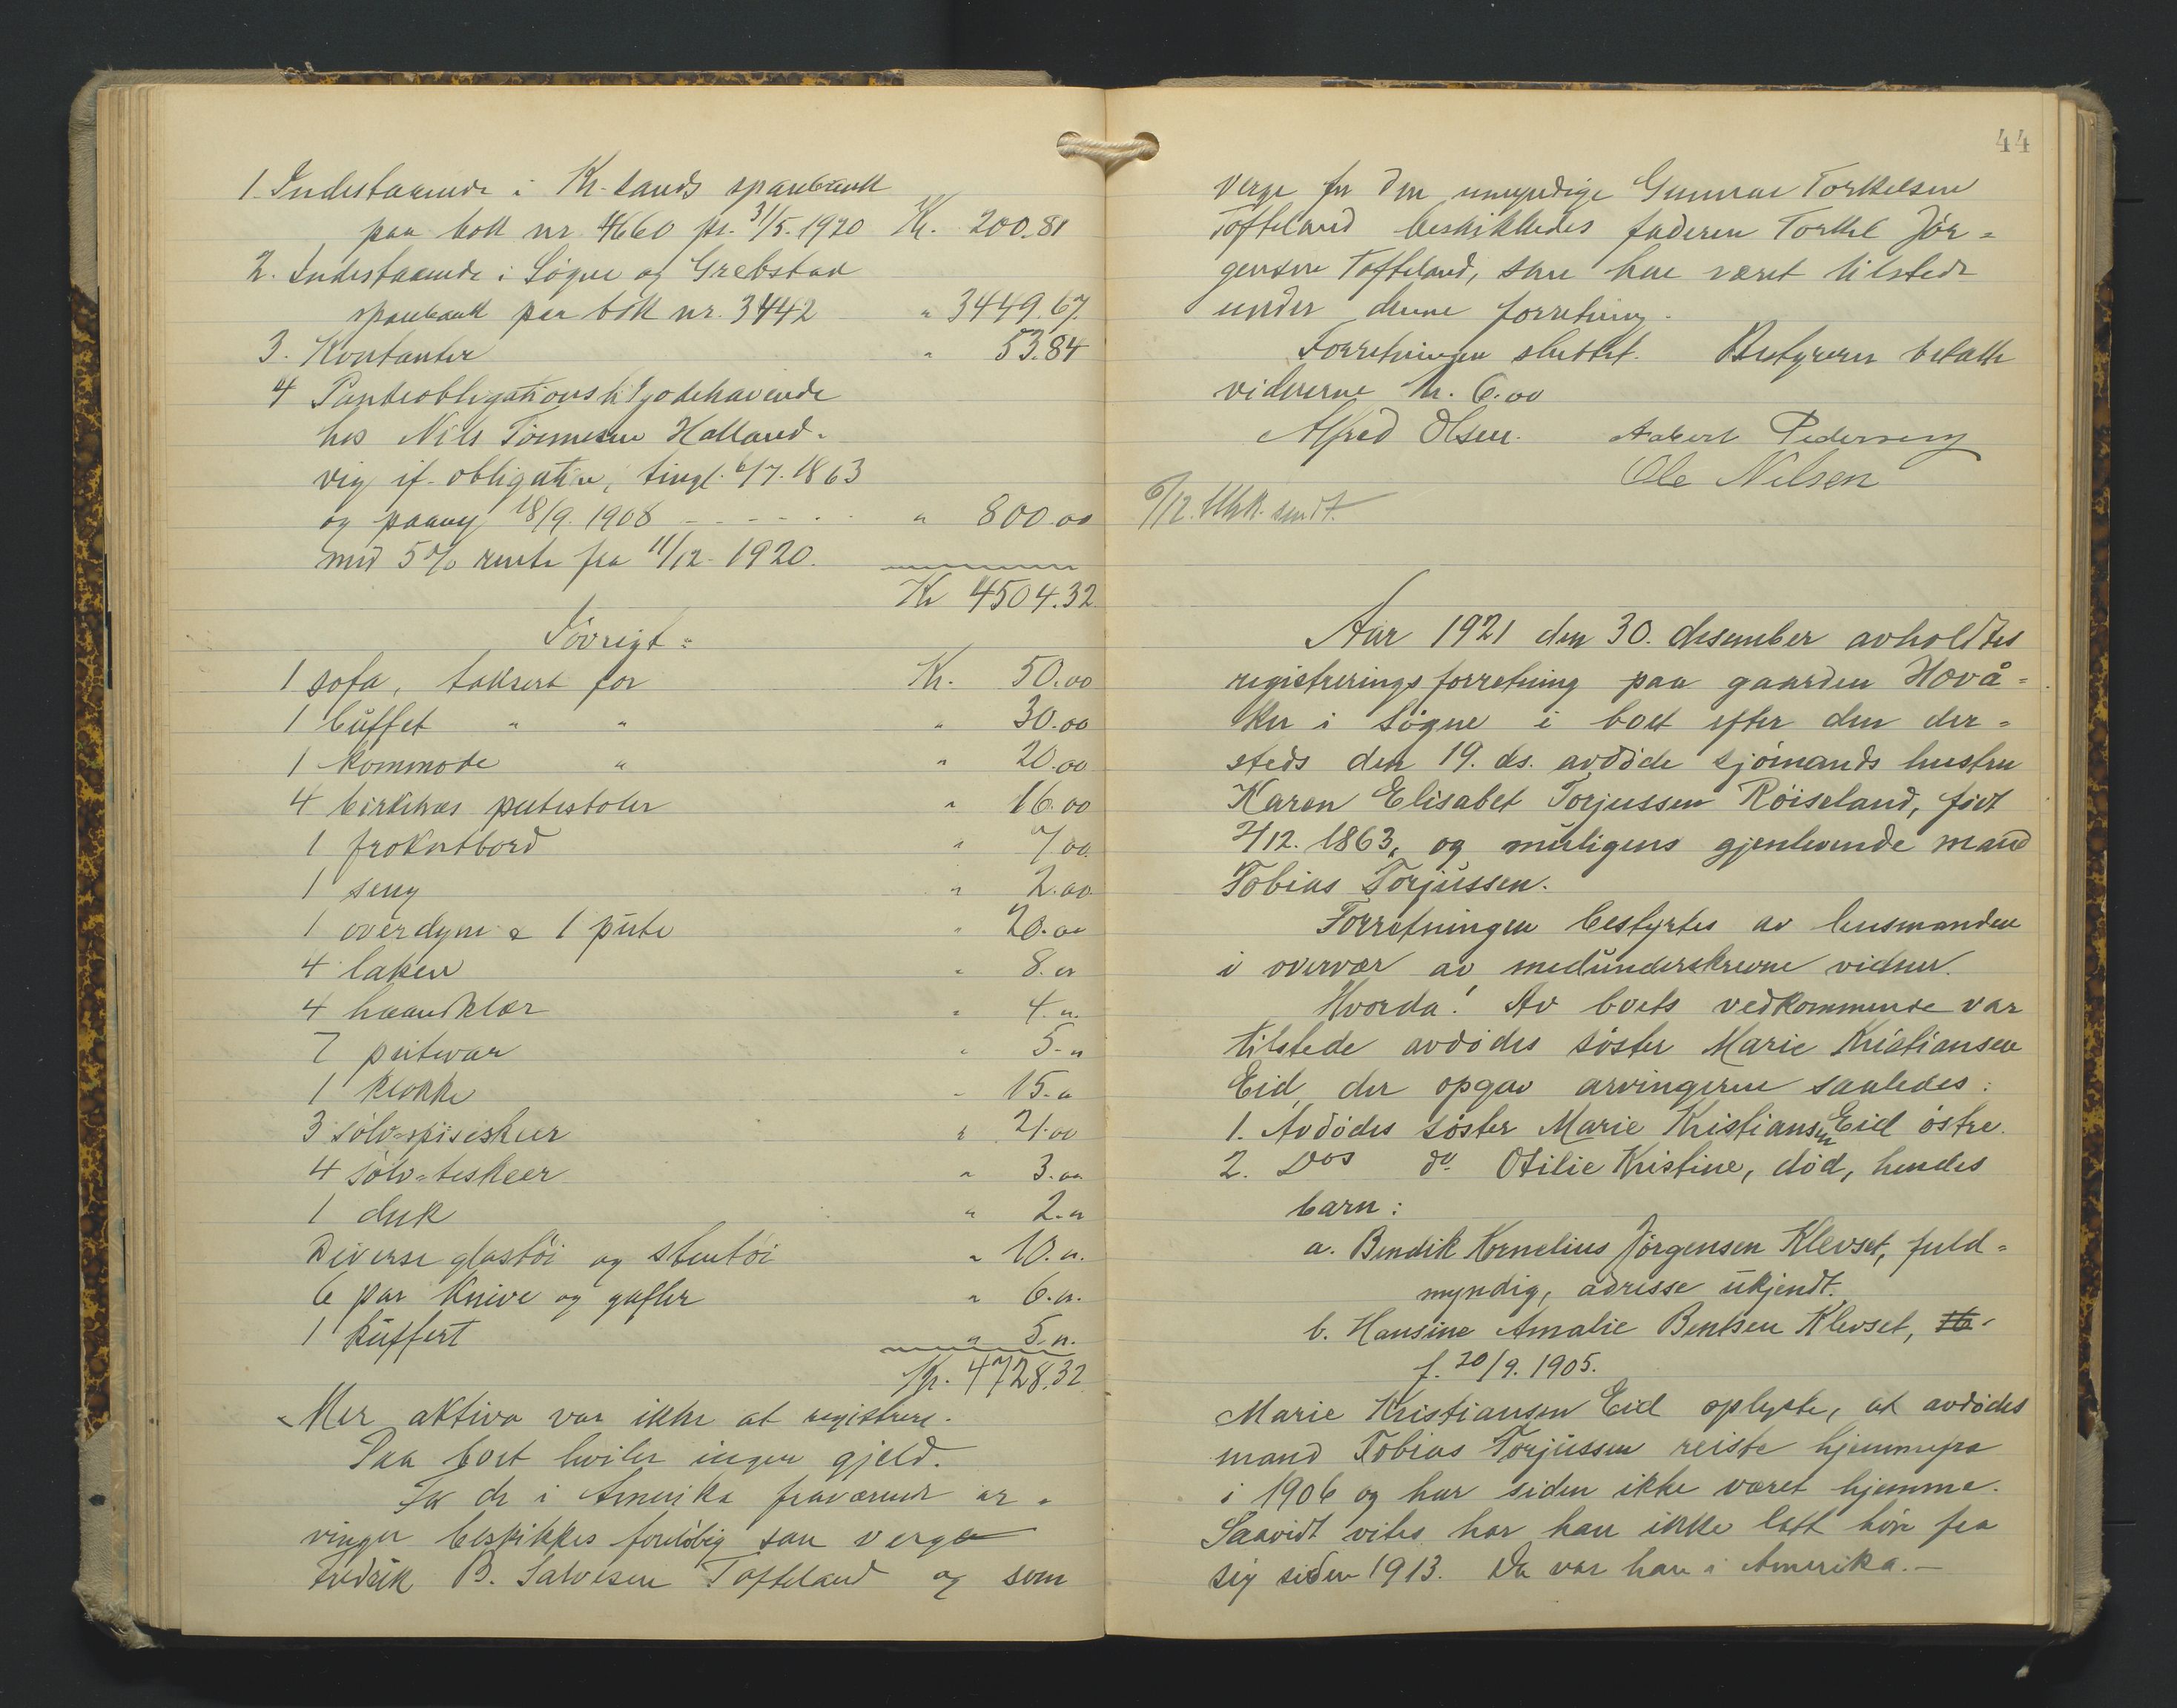 1. Indestaaende i Kr.sands sparebank
paa bok nr. 4660 pr. 31/5. 1920 Kr. 200.81
2. Indestaaende i Søgne og Greipstad
sparebank paa bok nr. 3442 " 3449.67
3. Kontanter " 53.84
4 Panteobligationstilgodehavende
hos Nils Tørressen Holland-
vig if. obligation, tingl. 6/7. 1863
og paany 18/9. 1908 - - - - - " 800.00
med 5% rente fra 11/12. 1920.
Kr 4504.32.
Iøvrigt:
1 sofa, taksert for Kr. 50.00
1 buffet " " " 30.00
1 kommode " " 20.00
4 birketræs putestoler " 16.00
1 frokostbord " 7.00
1 seng " 2.00
1 overdyne & 1 pute " 20.00
4 laken " 8.00
4 haandklær " 4.00
7 putevar " 5.00
1 klokke " 15.00
3 sølv-spiseskeer " 21.00
4 sølv-teskeer " 3.00
1 duk " 2.00
Diverse glastøi og stentøi " 10.00
6 par knive og gafler " 6.00
1 kuffert " 5.00
Kr. 4728.32
Mer aktiva var ikke at registrere.
Paa boet hviler ingen gjeld.
For de i Amerika fraværende ar-
vinger beskikkes foreløbig som verge
Fredrik B. Salvesen Tofteland og som
44
verge for den umyndige Gunnar Torkelsen
Tofteland beskikkedes faderen Torkel Jør-
gensen Tofteland, som har været tilstede
under denne forretning.
Forretningen sluttet. Bestyreren betalte
vidnerne kr. 6.00
Alfred Olsen. Aabert Pedersen
Ole Nilsen
6/12. Utsk. sendt.
Aar 1921 den 30. desember avholdtes
registreringsforretning paa gaarden Hovå-
ker i Søgne i boet efter den der-
steds den 19. ds. avdøde sjømands hustru
Karen Elisabet Torjussen Røiseland, født
2/12. 1863, og muligens gjenlevende mand
Tobias Torjussen.
Forretningen bestyrtes av lensmanden
i overvær av medunderskrevne vidner.
Hvorda! Av boets vedkommende var
tilstede avdødes søster Marie Kristiansen
Eid, der opgav arvingerne saaledes:
1. Avdødes søster Marie Kristiansen Eid østre.
2. Dos do. Otilie Kristine, død, hendes
barn:
a. Bendik Kornelius Jørgensen Klevset, fuld-
myndig, adresse ukjendt.
b. Hansine Amalie Bentsen Klevset, 16
f. 20/9. 1905.
Marie Kristiansen Eid oplyste, at avdødes
mand Tobias Torjussen reiste hjemmefra
i 1906 og har siden ikke været hjemme.
Saavidt vites har han ikke latt høre fra
sig siden 1913. Da var han i Amerika.-